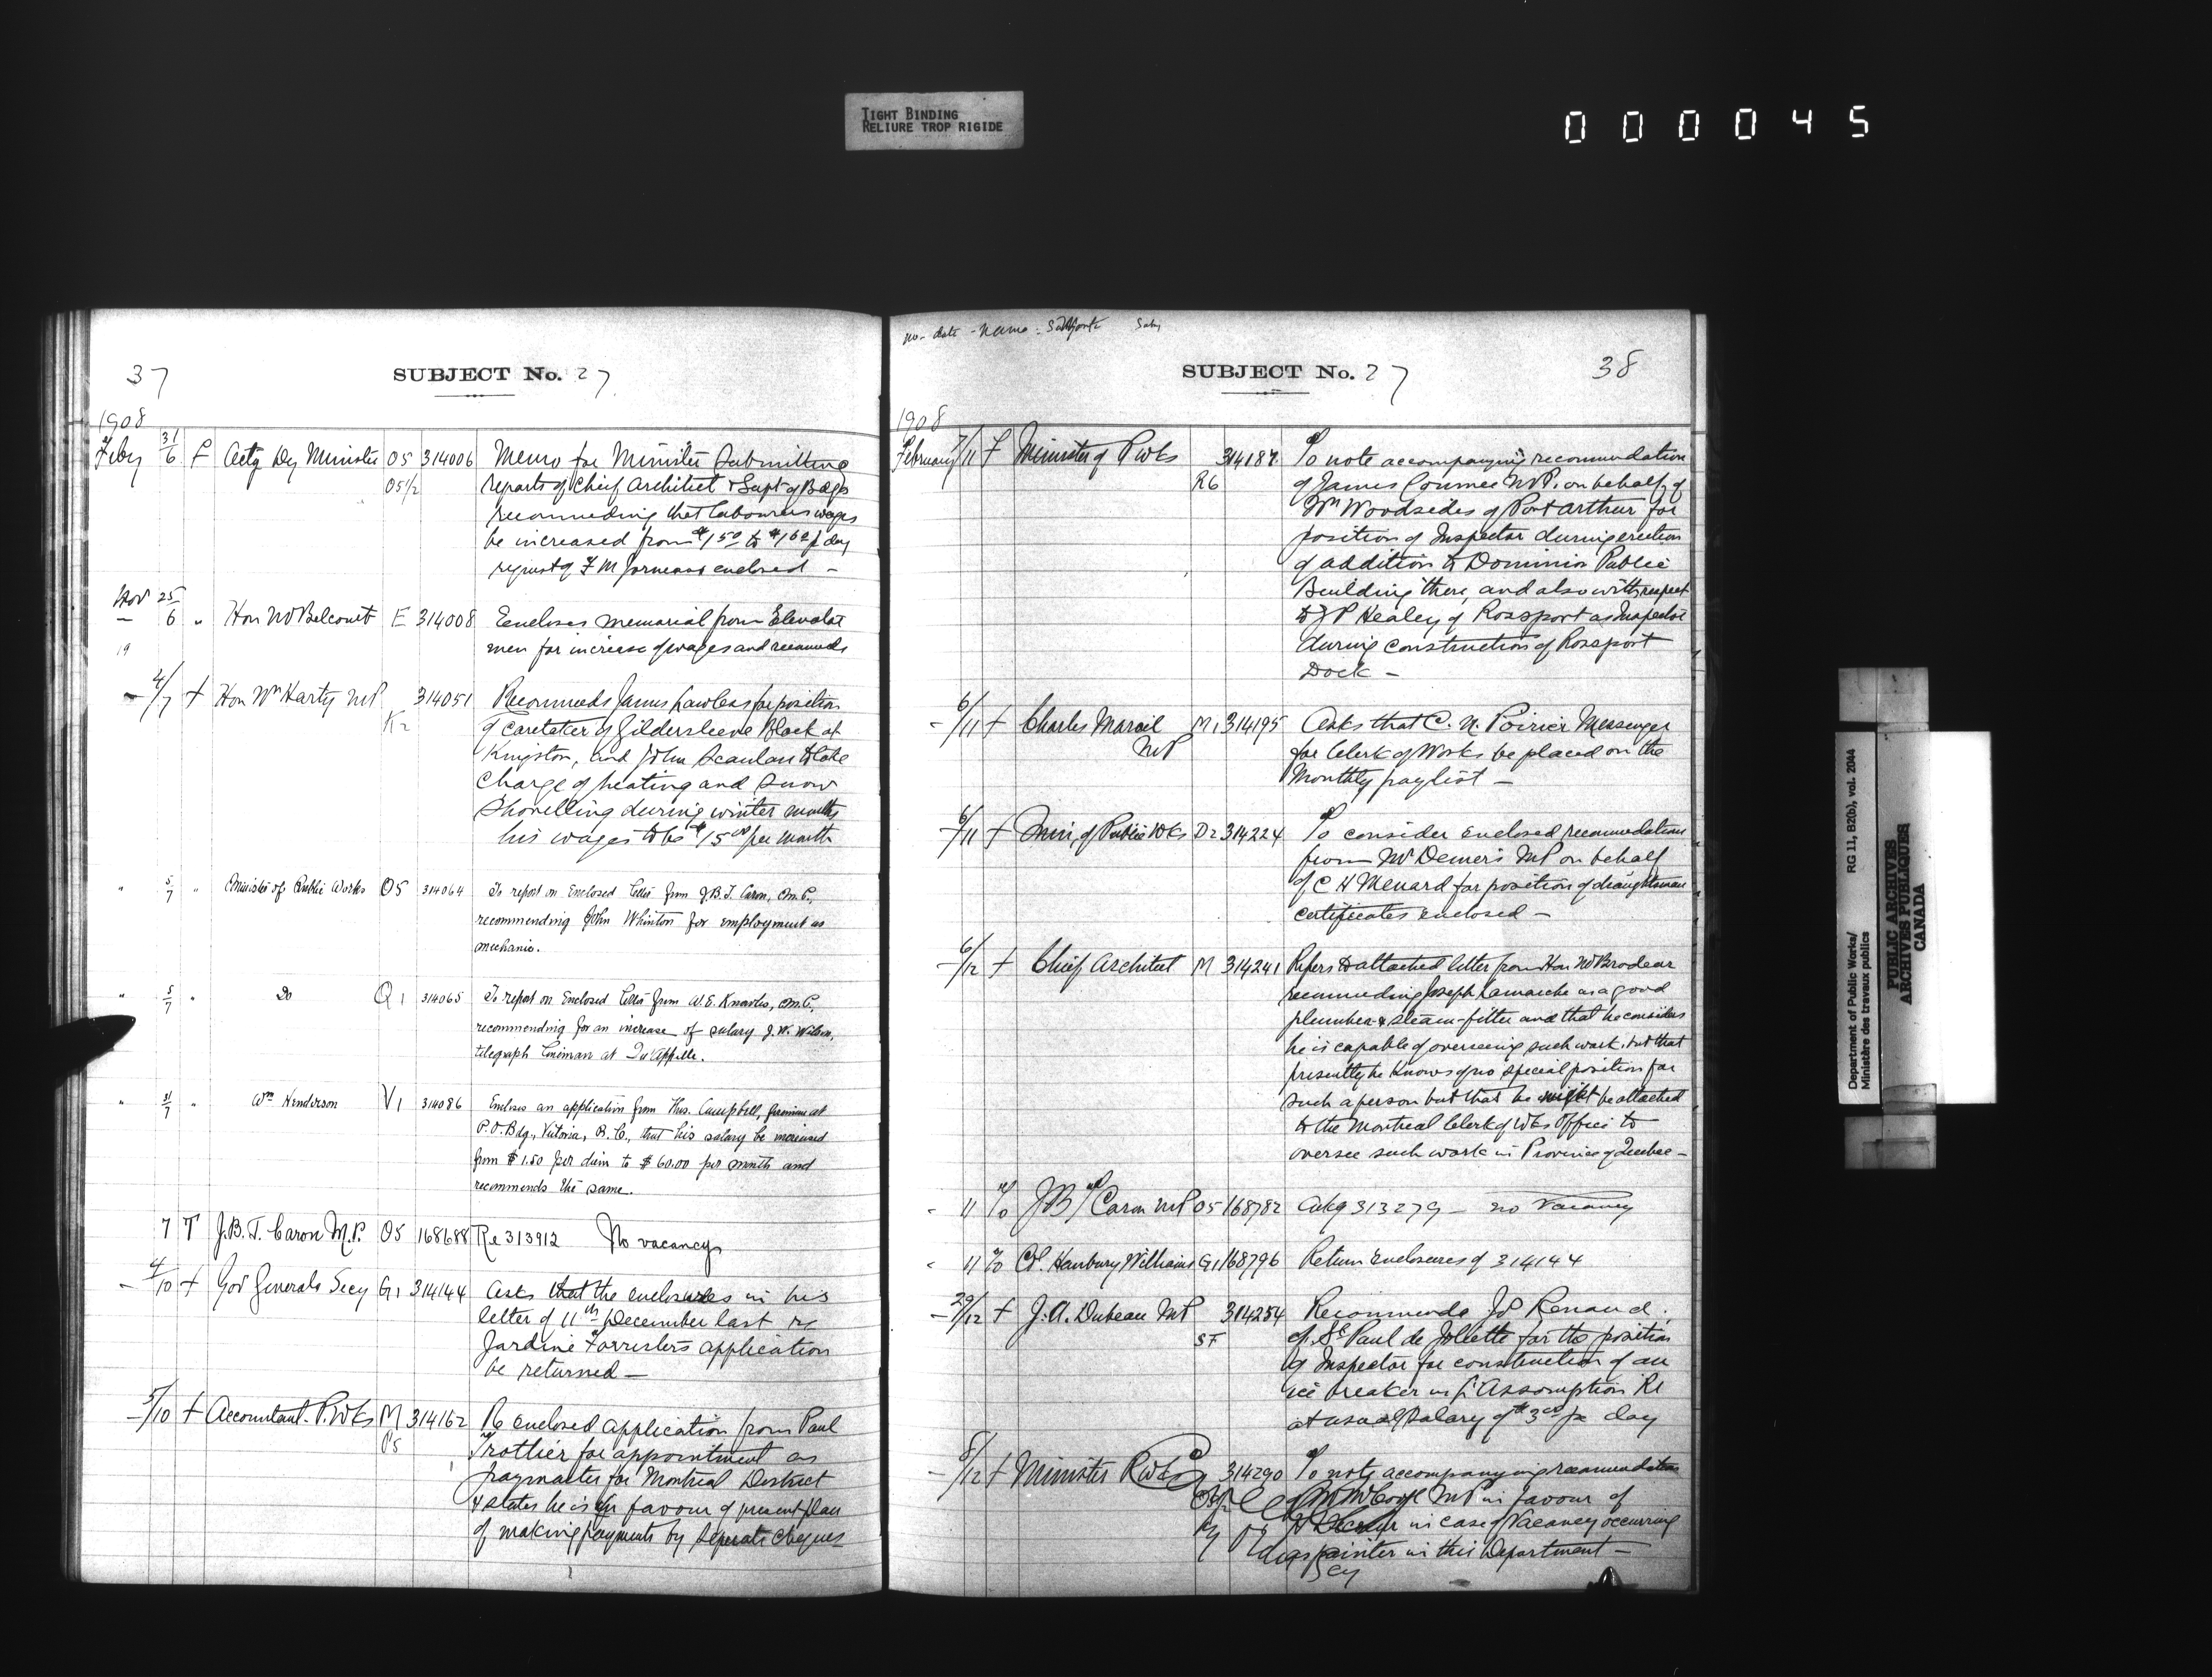 TIGHT BINDING
RELIURE TROP RIGIDE
000045
37
SUBJECT No. 27
1908
Feby 31/6 F Actg Dy Minister O5 314006 Memo for Minister submitting
O5 1/2 reports of Chief Architect & Supt of Bdgs
recommending that labourers wages
be increased from $1.50 to $1.62 p day
request of F M enclosed –
Nov 25/6 " Hon Mr Belcourt E 314008 Encloses memorial from Elevator
19 men for increase of wages and recomds
– 4/7 f Hon Wm Harty MP 314051 Recommends James Lawless for position
K2 of caretaker of Gildersleeve Block at
Kingston, and John Scanlan to take
charge of heating and snow
shovelling during winter months
his wages to be $15.00 per month
" 5/7 " Minister of Public Works O5 314064 To report on Enclosed letter from J.B.T. Caron, M.P.,
recommending John Whinton for employment as
mechanic.
" 5/7 " Do Q1 314065 To report on Enclosed letter from W.E. Knowles, M.P.,
recommending for an increase of salary J.W. Wilson,
telegraph lineman at Qu'Appelle.
" 31/7 " Wm Henderson V1 314086 Encloses an application from Thos. Campbell, fireman at
P.O. Bdg., Victoria, B.C., that his salary be increased
from $1.50 per diem to $60.00 per month and
recommends the same.
7 T J.B.T. Caron M.P. O5 168688 Re 313912 No vacancy
– 4/10 f Gov Generals Secy G1 314144 Asks that the enclosures in his
letter of 11th December last re
Jardine Forrister's application
be returned –
– 5/10 f Accountant P.Wks M 314162 Re Enclosed application from Paul
P5 Trottier for appointment as
paymaster for Montreal District
& states he is in favour of present plan
of making payments by separate cheques
no - date - name : Subject
SUBJECT No. 27
38
1908
February 7/11 F Minister of P Wks 314187 To note accompanying recommendation
R6 of James Conmee M.P. on behalf of
Wm Woodsides of Port Arthur for
position of Inspector during erection
of addition to Dominion Public
Building there, and also with respect
to J P Healey of Rossport as Inspector
during construction of Rossport
Dock –
– 6/11 f Charles Marcil M1 314195 Asks that C. N. Poirier Messenger
MP for Clerk of Works be placed on the
Monthly paylist –
– 6/11 f Min. of Public Wks D2 314224 To consider enclosed recommendation
from Mr Demers MP on behalf
of C H Menard for position of draughtsman
certificates enclosed –
– 6/12 f Chief Architect M 314241 Refers to attached letter from Hon Mr Brodeur
recommending Joseph Lamarche as a good
plumber & steam-fitter and that he considers
he is capable of overseeing such work, but that
presently he knows of no special position for
such a person but that he might be attached
to the Montreal Clerk of Wks Office to
oversee such work in Province of Quebec –
" 11 To J B T Caron MP O5 168782 Ackg 313279 – no vacancy
" 11 To Col. Hanbury Williams G1 168796 Return Enclosures of 314144
– 29/12 f J. A. Dubeau MP 314254 Recommends Jos Renaud
SF of St Paul de Joliette for the position
of Inspector for construction of an
ice breaker in L'Assomption R
at usual salary of $3.00 per day
– 8/12 f Minister P Wks 314290 To note accompanying recommendation
of Mr McCool MP in favour of
in case of vacancy occurring
as painter in this Department –
Department of Public Works/
Ministère des travaux publics
RG 11, B2(b), vol. 2044
PUBLIC ARCHIVES
ARCHIVES PUBLIQUES
CANADA